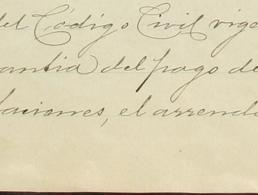 del Código Civil vige
antia del pago de
laciones, el arrenda